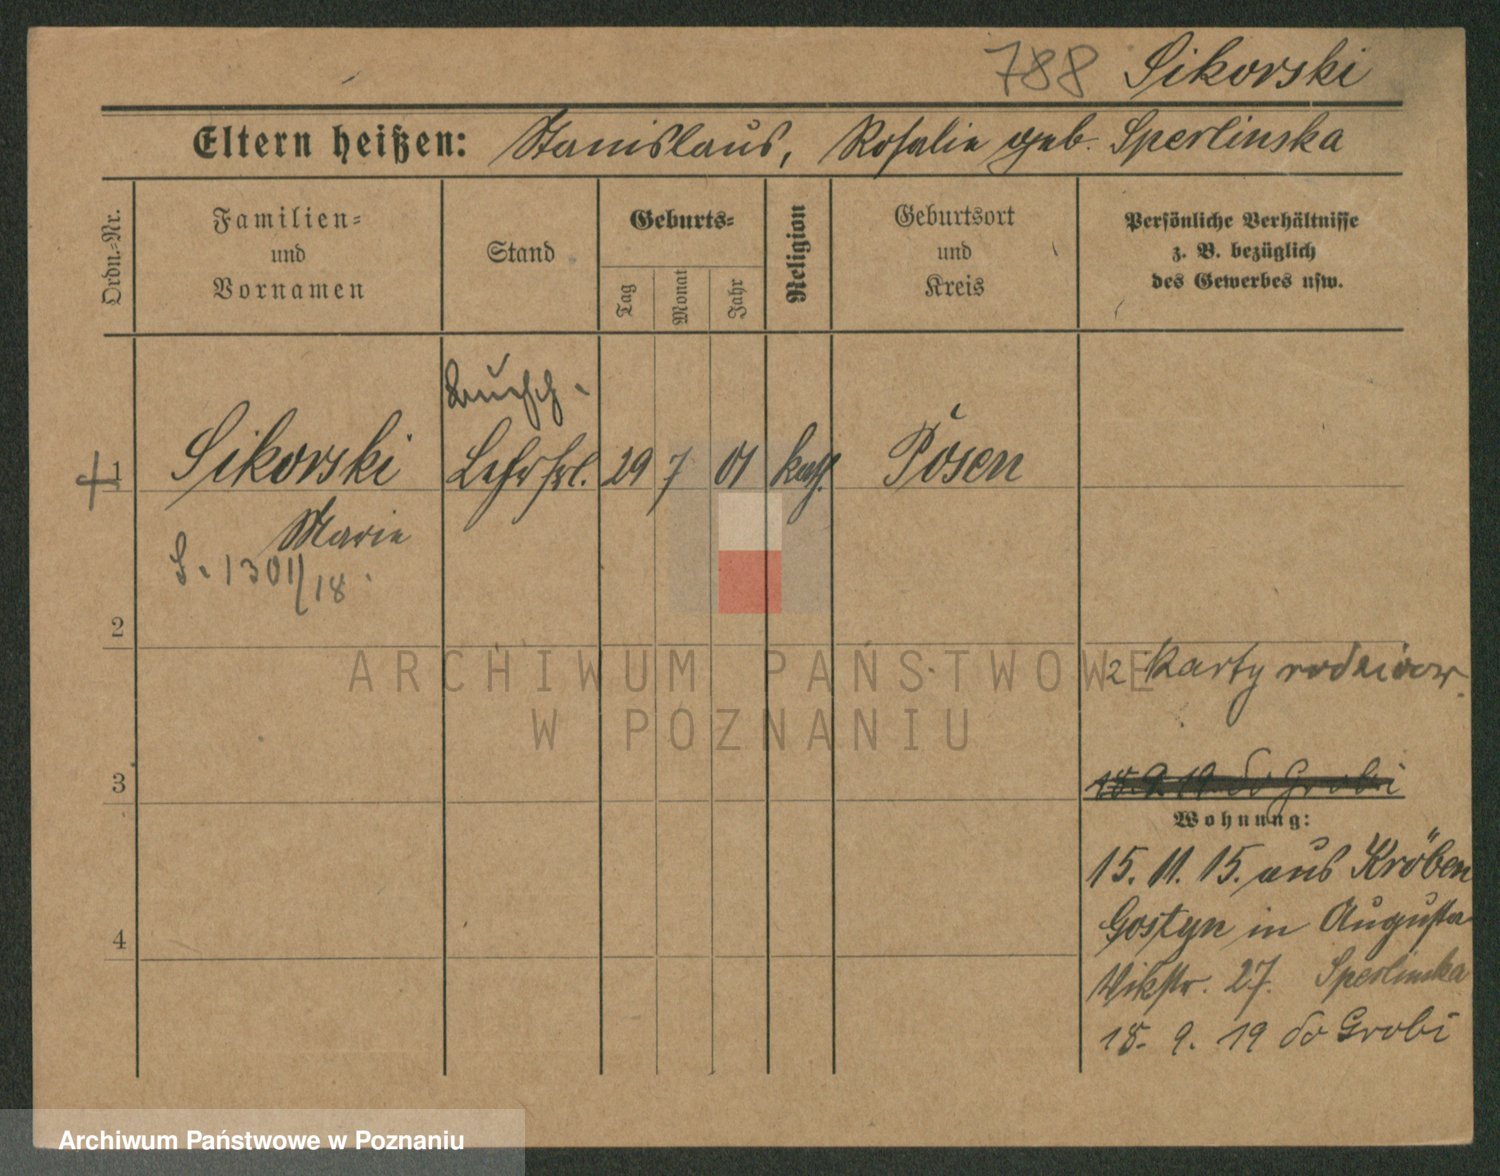 788 Sikorski
Eltern heißen: Stanislaus, Rosalie geb. Sperlinska
Ordn.-Nr.
Familien-
und
Vornamen
Stand
Geburts-
Tag
Monat
Jahr
Religion
Geburtsort
und
Kreis
Persönliche Verhältnisse
z. B. bezüglich
des Gewerbes usw.
1 Sikorski Lehrfrl. 29 7 01 kath. Posen
Marie
S. 1301/18.
2
2 karty rodziców.
3
18. 9. 19 do Grobi
Wohnung:
15. 11. 15. aus Kröben
Gostyn in Augusta
4
Vikstr. 27. Sperlinska
18. 9. 19 do Grobi
ARCHIWUM PAŃSTWOWE
W POZNANIU
Archiwum Państwowe w Poznaniu